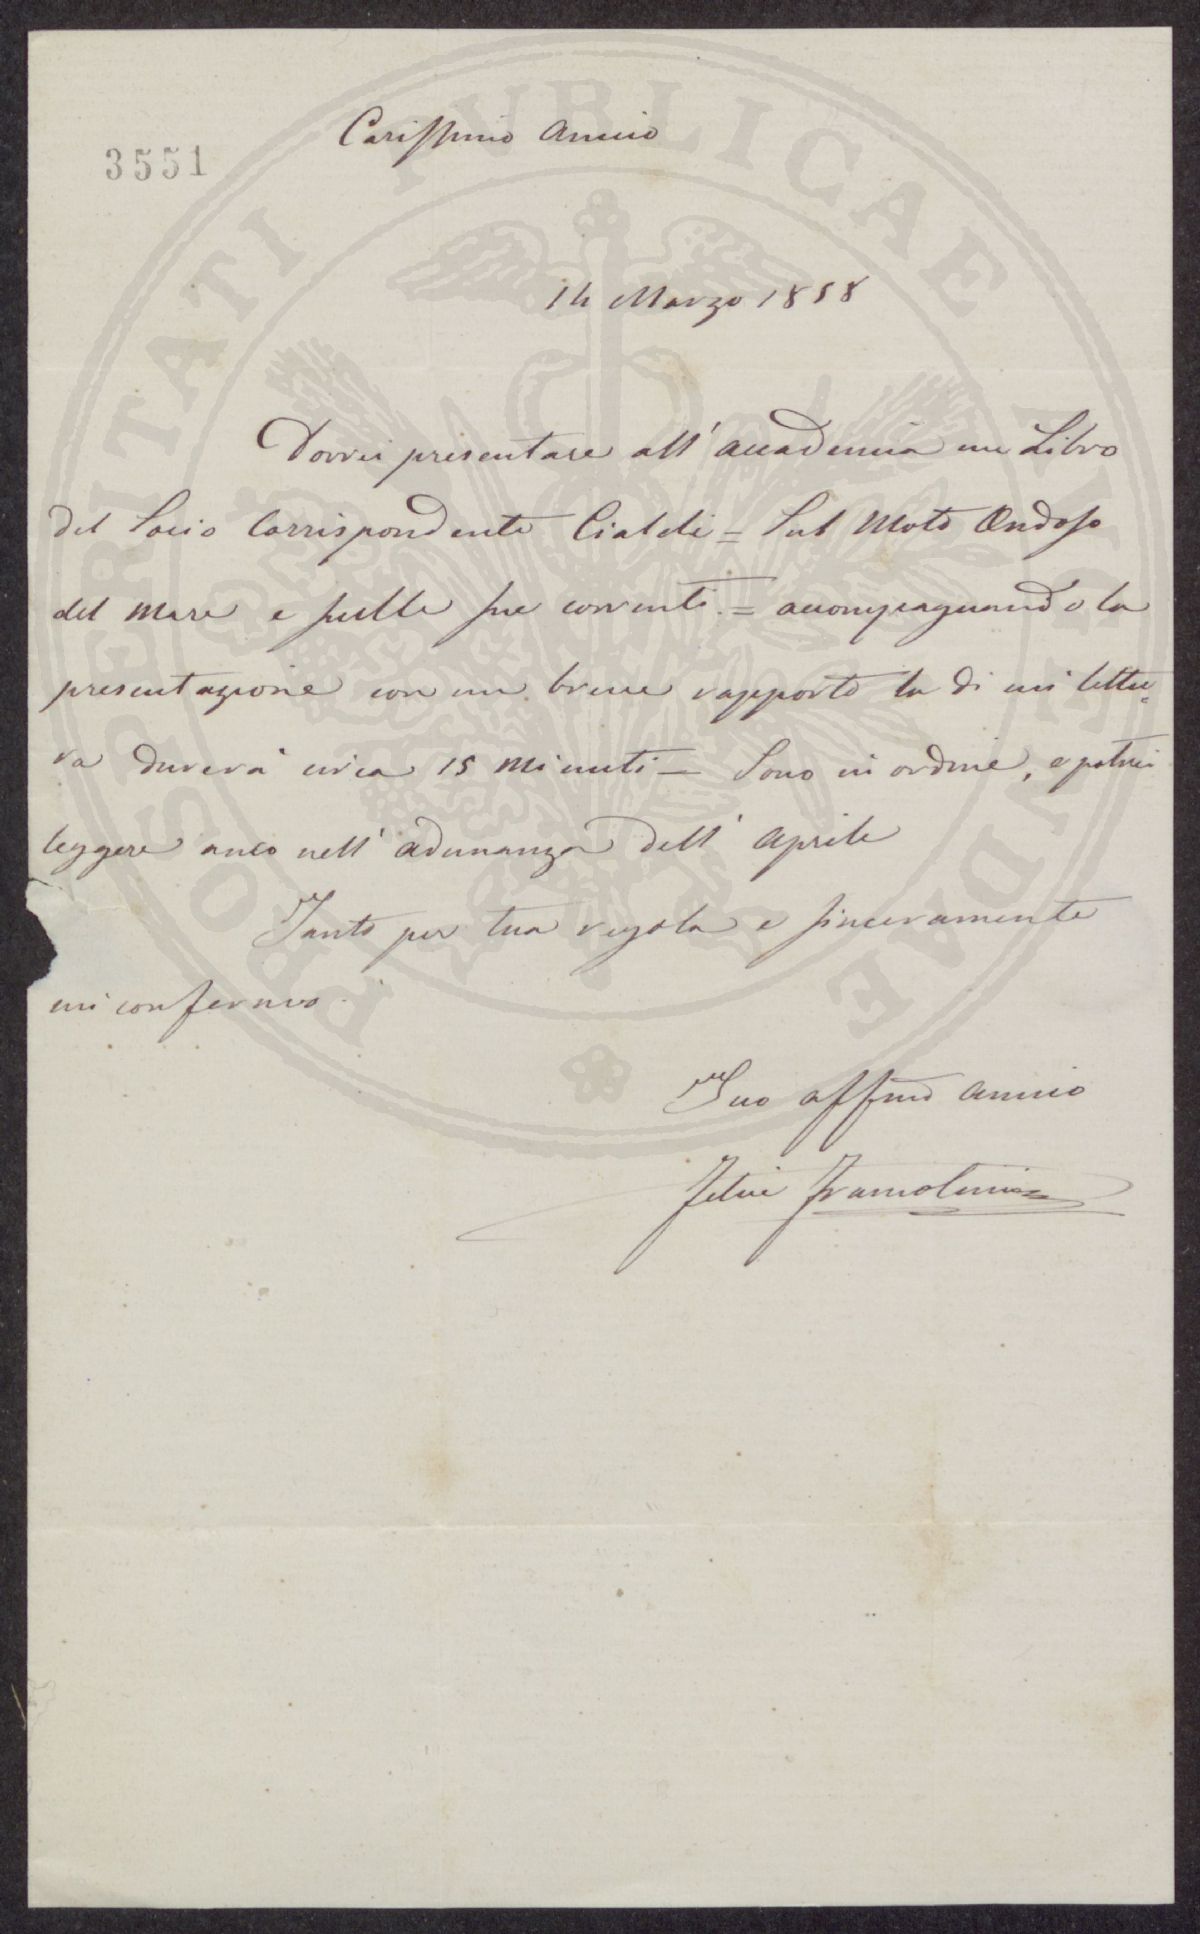 3551
Carissimo Amico
14 Marzo 1858
Dovrei presentare all'accademia un Libro
del Socio Corrispondente Cialdi = Sul Moto Ondoso
del Mare e sulle sue correnti = accompagnando la
presentazione con un breve rapporto la di cui lettu=
ra durerà circa 15 Minuti — Sono in ordine, e potrei
leggere anco nell'adunanza dell'Aprile
Tanto per tua regola e sinceramente
mi confermo.
Tuo affmo amico
Felice Francolini
PROSPERITATI PUBLICAE AUGENDAE